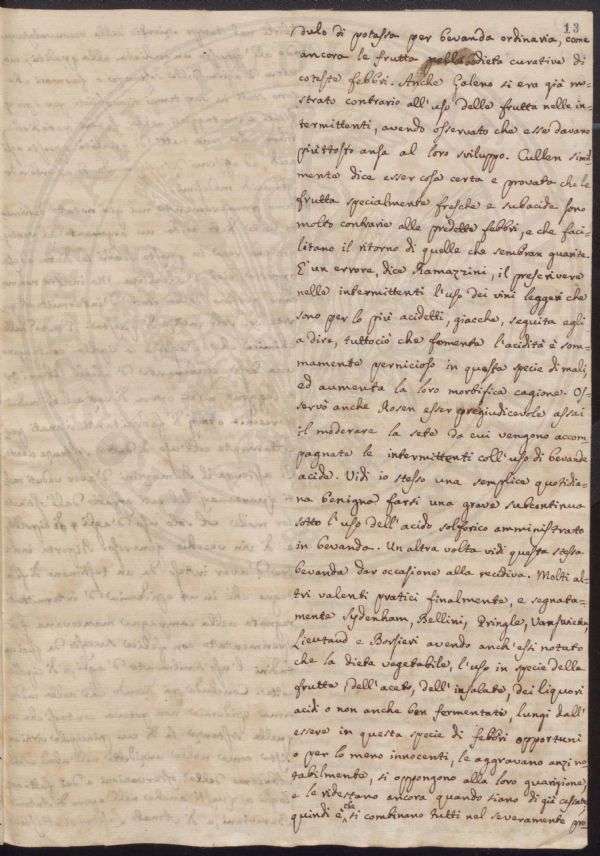 13
dulo di potassa per bevanda ordinaria, come
ancora le frutta nella dieta curativa di
coteste febbri. Anche Galeno si era già mo-
strato contrario all'uso delle frutta nelle in-
termittenti, avendo osservato che esse davano
piuttosto ansa al loro sviluppo. Cullen simil-
mente dice esser cosa certa e provata che le
frutta specialmente fresche e subacide sono
molto contrarie alle predette febbri, e che faci-
litano il ritorno di quelle che sembran guarite.
E' un errore, dice Ramazzini, il prescrivere
nelle intermittenti l'uso dei vini leggeri che
sono per lo più acidetti, giacche, seguita egli
a dire, tuttociò che fomenta l'acidità è som-
mamente pernicioso in questa specie di mali,
ed aumenta la loro mortifica cagione. Os-
servò anche Rosen esser pregiudicevole assai
il moderare la sete da cui vengono accom-
pagnate le intermittenti coll'uso di bevande
acide. Vidi io stesso una semplice quotidia-
na benigna farsi una grave subcontinua
sotto l'uso dell'acido solforico amministrato
in bevanda. Un altra volta vidi questa stessa
bevanda dar occasione alla recidiva. Molti al-
tri valenti pratici finalmente, e segnata-
mente Sydenham, Bellini, Pringle, Vanswieten,
Lieutaud e Borsieri avendo anch'essi notato
che la dieta vegetabile, l'uso in specie delle
frutta, dell'aceto, dell'insalate, dei liquori
acidi o non anche ben fermentati, lungi dall'
essere in questa specie di febbri opportuni
o per lo meno innocenti, le aggravano anzi no-
tabilmente, si oppongono alla loro guarigione,
e le ridestano ancora quando siano di già cessate,
quindi è che si combinano tutti nel severamente pro-